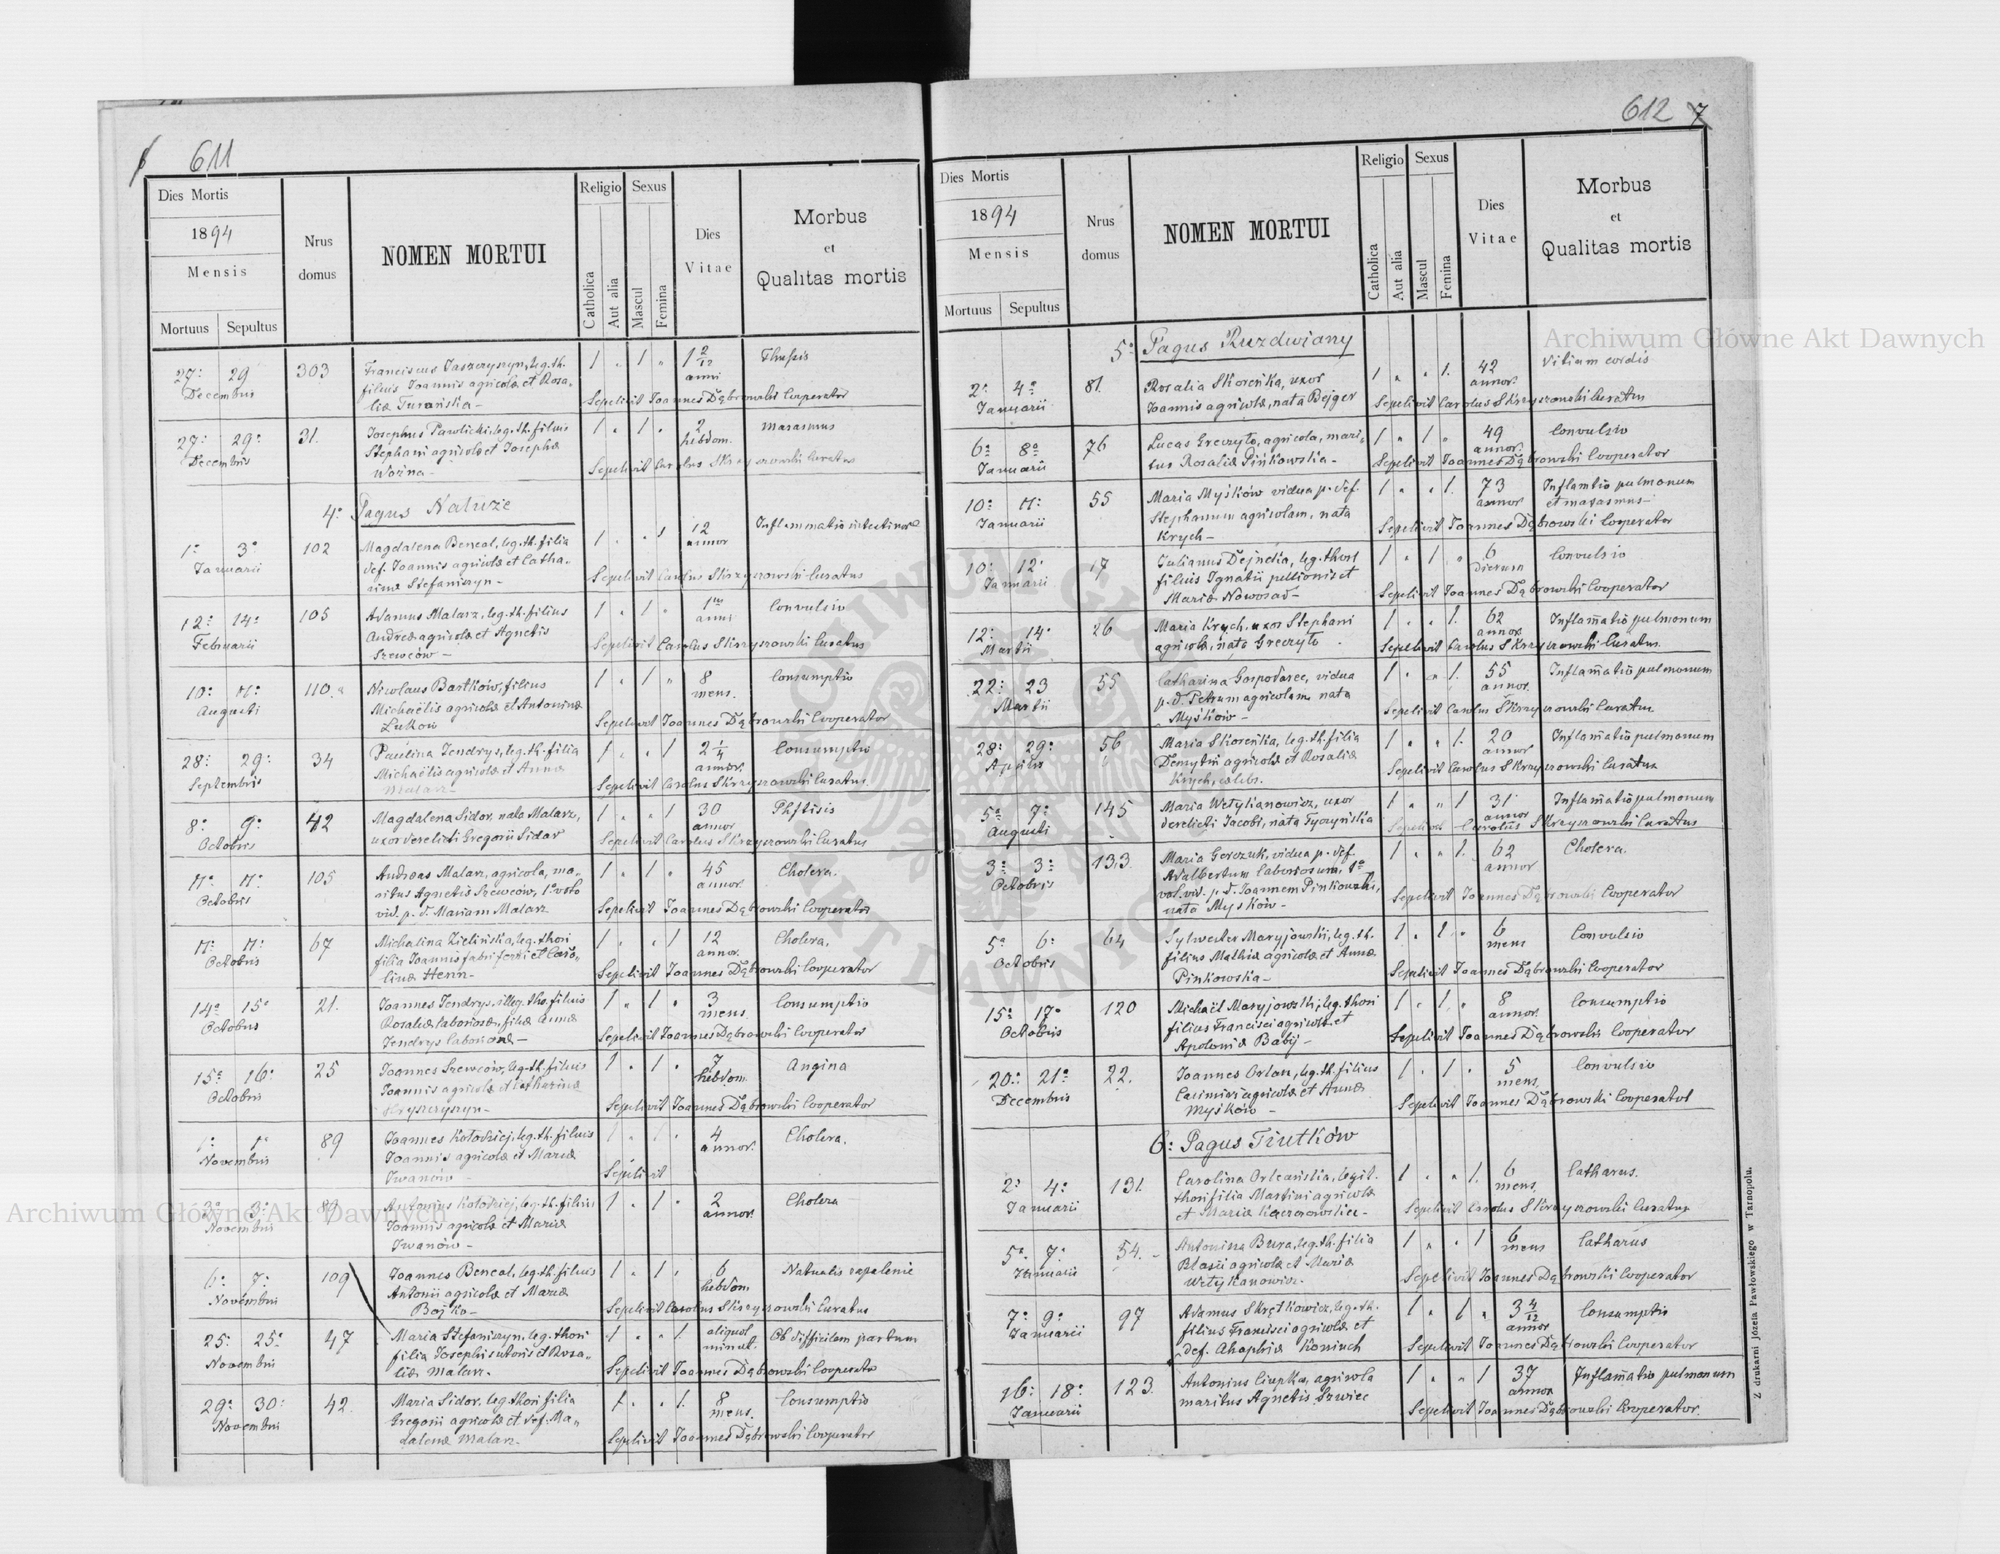 611
Dies Mortis
1894
Mensis
Mortuus Sepultus
Nrus domus
NOMEN MORTUI
Religio
Catholica
Aut alia
Sexus
Mascul
Femina
Dies Vitae
Morbus
et
Qualitas mortis
27: 29 303 Franciscus leg. th. 1 " 1 " 1 2/12
Decembris filius Joannis agricolæ et Rosa- anni
liæ Turańska - Sepelivit Joannes Dąbrowski Cooperator
27: 29: 31. Josephus Pawlicki, leg. th. filius 1 " 1 " 2 Marasmus
Decembris Stephani agricolæ et Josephæ hebdom.
Woźna - Sepelivit Carolus Skrzyszowski Curatus
4: Pagus Nałuże
1: 3: 102 Magdalena Bencal, leg. th. filia 1 " " 1 12 Inflammatio intestinor
Januarii def. Joannis agricolæ et Catha- annor
rinæ Stefaniszyn - Sepelivit Carolus Skrzyszowski Curatus
12: 14: 105 Adamus Malarz, leg. th. filius 1 " 1 " 1 Convulsio
Februarii Andreæ agricolæ et Agnetis anni
Szewców - Sepelivit Carolus Skrzyszowski Curatus
10: 11: 110. Nicolaus Bartków, filius 1 " 1 " 8 Consumptio
Augusti Michaëlis agricolæ et Antoninæ mens.
Łuków Sepelivit Joannes Dąbrowski Cooperator
28: 29: 34 Paulina Jendrys, leg. th. filia 1 " " 1 2 1/4 Consumptio
Septembris Michaëlis agricolæ et Annæ annor.
Malarz - Sepelivit Carolus Skrzyszowski Curatus
8: 9: 42 Magdalena Sidor, nata Malarz, 1 " " 1 30 Phtisis
Octobris uxor derelicti Gregorii Sidor annor
Sepelivit Carolus Skrzyszowski Curatus
11: 11: 105 Andreas Malarz, agricola, ma- 1 " 1 " 45 Cholera.
Octobris ritus Agnetis Szewców, 1: voto annor.
vid. p. d. Mariam Malarz Sepelivit Joannes Dąbrowski Cooperator
11: 11: 67 Michalina Zielińska, leg. thori 1 " " 1 12 Cholera.
Octobris filia Joannis fabri ferri et Caro- annor.
linæ Henn - Sepelivit Joannes Dąbrowski Cooperator
14: 15: 21. Joannes Jendrys, illeg. tho. filius 1 " 1 " 3 Consumptio
Octobris Rosaliæ laboriosæ, filiæ Annæ mens.
Jendrys laboriosæ - Sepelivit Joannes Dąbrowski Cooperator
15: 16: 25 Joannes Szewców, leg. th. filius 1 " 1 " 7 Angina
Octobris Joannis agricolæ et Catharinæ hebdom
Hryszczyszyn - Sepelivit Joannes Dąbrowski Cooperator
1: 1: 89 Joannes Kołodziej, leg. th. filius 1 " 1 " 4 Cholera.
Novembris Joannis agricolæ et Mariæ annor.
Iwanów - Sepelivit
3: 3: 89 Antonius Kołodziej, leg. th. filius 1 " 1 " 2 Cholera
Novembris Joannis agricolæ et Mariæ annor.
Iwanów -
6: 7: 109 Joannes Bencal, leg. th. filius 1 " 1 " 6
Novembris Antonii agricolæ et Mariæ hebdom.
Bojko - Sepelivit Carolus Skrzyszowski Curatus
25: 25: 47 Maria Stefaniszyn, leg. thori 1 " " 1. aliquot Ob difficilem partum
Novembris filia Josephi sutoris et Rosa- minut.
liæ Malarz. Sepelivit Joannes Dąbrowski Cooperator
29: 30: 42. Maria Sidor, leg. thori filia 1 " " 1. 8 Consumptio
Novembris Gregorii agricolæ et def. Ma- mens.
dalenæ Malarz. Sepelivit Joannes Dąbrowski Cooperator
612 7
Dies Mortis
1894
Mensis
Mortuus Sepultus
Nrus domus
NOMEN MORTUI
Religio
Catholica
Aut alia
Sexus
Mascul
Femina
Dies Vitae
Morbus
et
Qualitas mortis
5: Pagus Ruzdwiany
2: 4: 81. Rosalia Skoreńka, uxor 1 " " 1. 42 Vitium cordis
Januarii Joannis agricolæ, nata Bejger annor.
Sepelivit Carolus Skrzyszowski Curatus
6: 8: 76 Lucas Greczyło, agricola, mari- 1 " 1 " 49 Convulsio
Januarii tus Rosaliæ Pińkowska - annor.
Sepelivit Joannes Dąbrowski Cooperator
10: 11: 55 Maria Myśków vidua p. def. 1 " " 1. 73 Inflamtio pulmonum
Januarii Stephanum agricolam, nata annor. et marasmus -
Krych - Sepelivit Joannes Dąbrowski Cooperator
10: 12: 17 Julianus Dejneka, leg. thori 1 " 1 " 6 Convulsio
Januarii filius Ignatii pellionis et dierum
Mariæ Nowosad - Sepelivit Joannes Dąbrowski Cooperator
12: 14: 26 Maria Krych, uxor Stephani 1 " " 1. 62 Inflam̄atio pulmonum
Martii agricolæ, nata Greczyło annor.
Sepelivit Carolus Skrzyszowski Curatus.
22: 23 55 Catharina Gospodarec, vidua 1 " " 1. 55 Inflam̄atio pulmonum
Martii p. d. Petrum agricolam nata annor.
Myśków - Sepelivit Carolus Skrzyszowski Curatus
28: 29: 56 Maria Skoreńka, leg. th. filia 1 " " 1. 20 Inflam̄atio pulmonum
Aprilis Demytri agricolæ et Rosaliæ annor
Krych, cælebs. Sepelivit Carolus Skrzyszowski Curatus
5: 7: 145 Maria Wetylianowicz, uxor 1 " " 1 31 Inflam̄atio pulmonum
Augusti derelicti Jacobi, nata Tyczyńska annor
Sepelivit Carolus Skrzyszowski Curatus
3: 3: 133. Maria Gerczuk, vidua p. def. 1 " " 1. 62 Cholera.
Octobris Adalbertum laboriosum, 1: annor
vot. vid. p. d. Joannem Pinkowski,
nata Myśków - Sepelivit Joannes Dąbrowski Cooperator
5: 6: 64 Sylvester Maryjowski, leg. th. 1 " 1 " 6 Convulsio
Octobris filius Mathiæ agricolæ et Annæ mens
Pińkowska - Sepelivit Joannes Dąbrowski Cooperator
15: 17: 120 Michaël Maryjowski, leg. thori 1 " 1. " 8 Consumptio
Octobris filius Francisci agricolæ et annor.
Apoloniæ Babij - Sepelivit Joannes Dąbrowski Cooperator
20: 21: 22. Joannes Orlan, leg. th. filius 1 " 1 " 5 Convulsio
Decembris Casimiri agricolæ et Annæ mens.
Myśków - Sepelivit Joannes Dąbrowski Cooperator
6: Pagus Tiutków
2: 4: 131. Carolina Orleańska, legit. 1 " " 1. 6 Catharus.
Januarii thori filia Martini agricolæ mens.
et Mariæ Sepelivit Carolus Skrzyszowski Curatus
5: 7: 54. Antonina Bura, leg. th. filia 1 " " 1 6 Catharus
Januarii Blasii agricolæ et Mariæ mens
Wetykanowicz. Sepelivit Joannes Dąbrowski Cooperator
7: 9: 97 Adamus Skrętkowicz, leg. th. 1 " 1 " 3 4/12 Consumptio
Januarii filius Francisci agricolæ et annor
def. Ahaphiæ Koniuch Sepelivit Joannes Dąbrowski Cooperator
16: 18: 123. Antonius Ciupka, agricola 1 " " 1 37 Inflam̄atio pulmonum
Januarii maritus Agnetis Szwiec annor
Sepelivit Joannes Dąbrowski Cooperator.
Z drukarni Józefa Pawłowskiego w Tarnopolu.
Archiwum Główne Akt Dawnych
Archiwum Główne Akt Dawnych